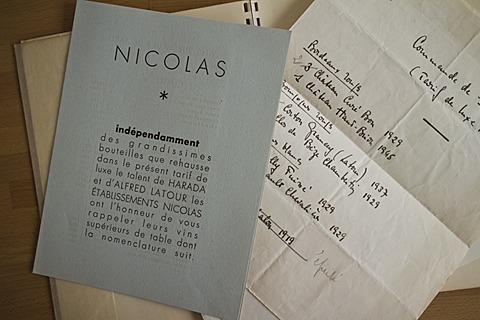 NICOLAS
*
indépendamment
des grandissimes
bouteilles que rehausse
dans le présent tarif de
luxe le talent de HARADA
et d'ALFRED LATOUR les
ÉTABLISSEMENTS NICOLAS
ont l'honneur de vous
rappeler leurs vins
supérieurs de table dont
la nomenclature suit.
Commande de
(Tarif de luxe
Bordeaux rouges
Château Curé Bon 1929
1 Château Haut-Brion 1945
rouges
Corton (Latour) 1937
Clos de Bèze Chambertin 1929
Fuissé 1929
Chevalier 1929
1919 épuisé